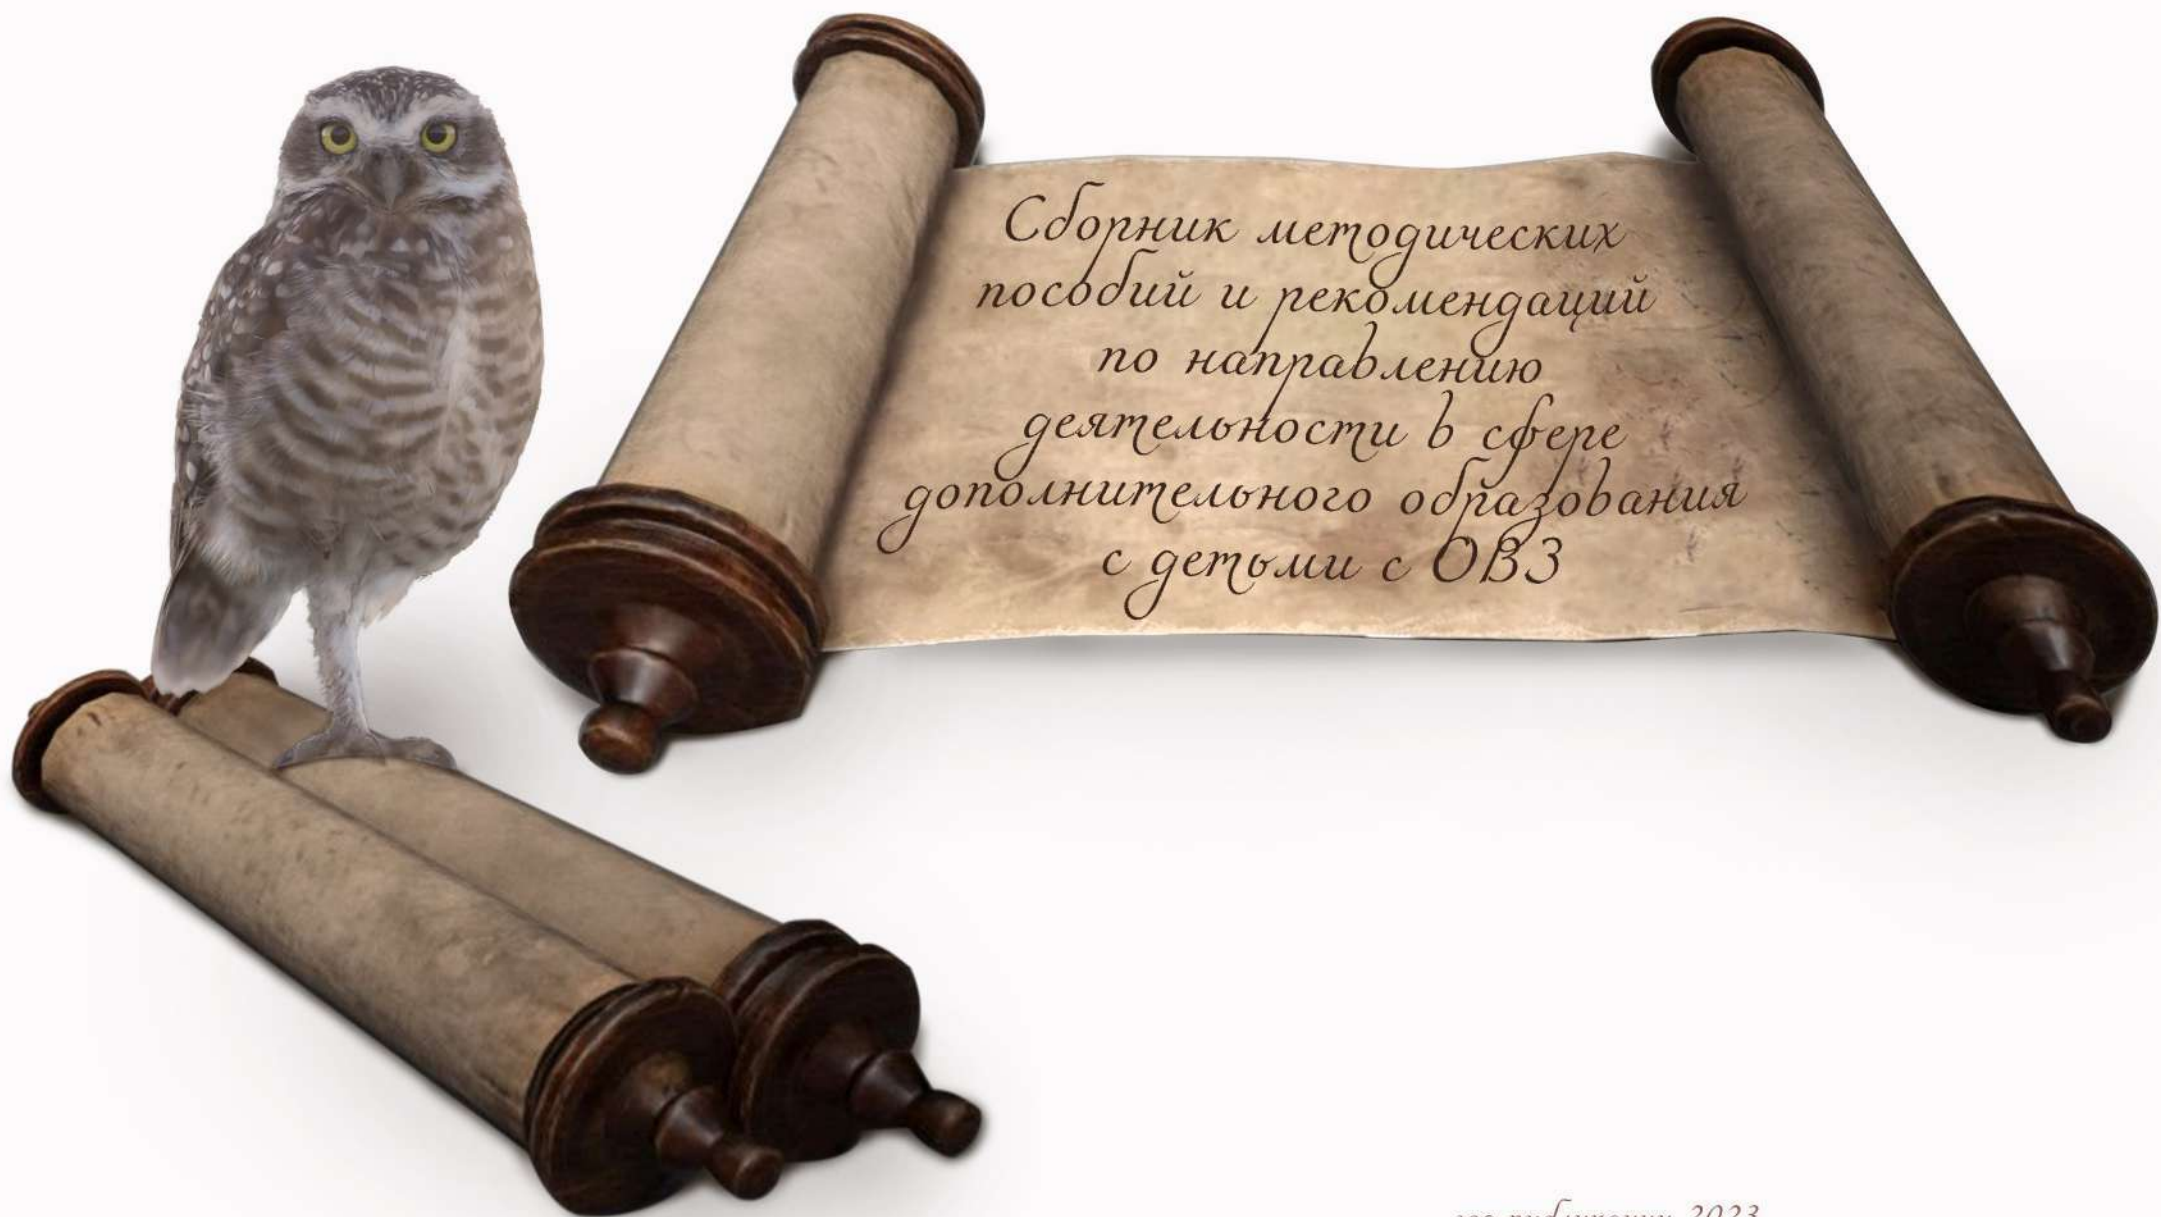 Сборник методических
пособий и рекомендаций
по направлению
деятельности в сфере
дополнительного образования
с детьми с ОВЗ
год публикации 2023